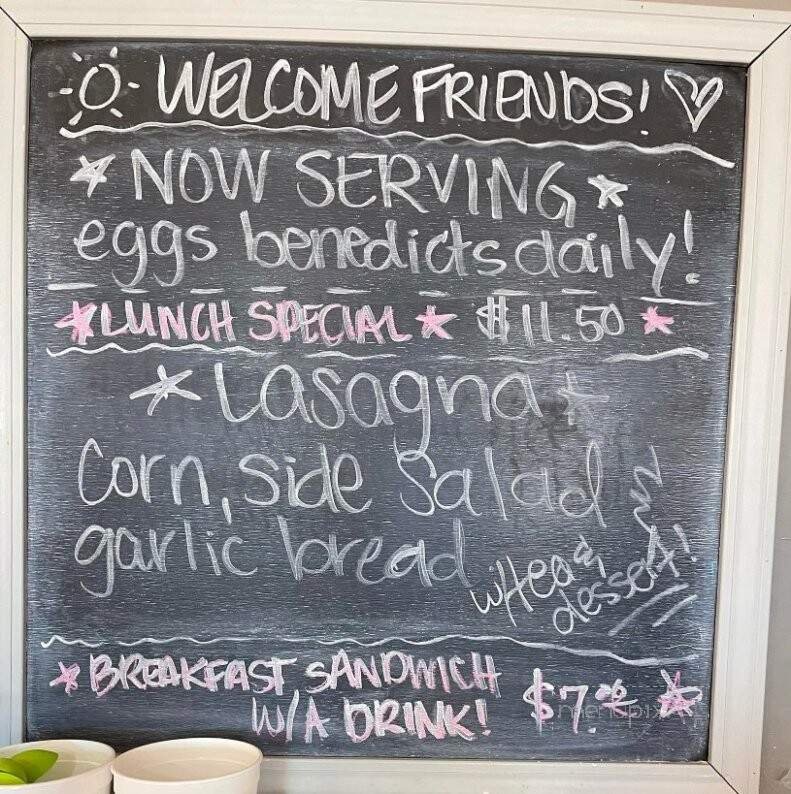 WELCOME FRIENDS!
NOW SERVING
eggs benedicts daily!
LUNCH SPECIAL $11.50
Lasagna
Corn, side salad
garlic bread
w/tea &
dessert!
BREAKFAST SANDWICH
W/A DRINK! $7.00
menupix